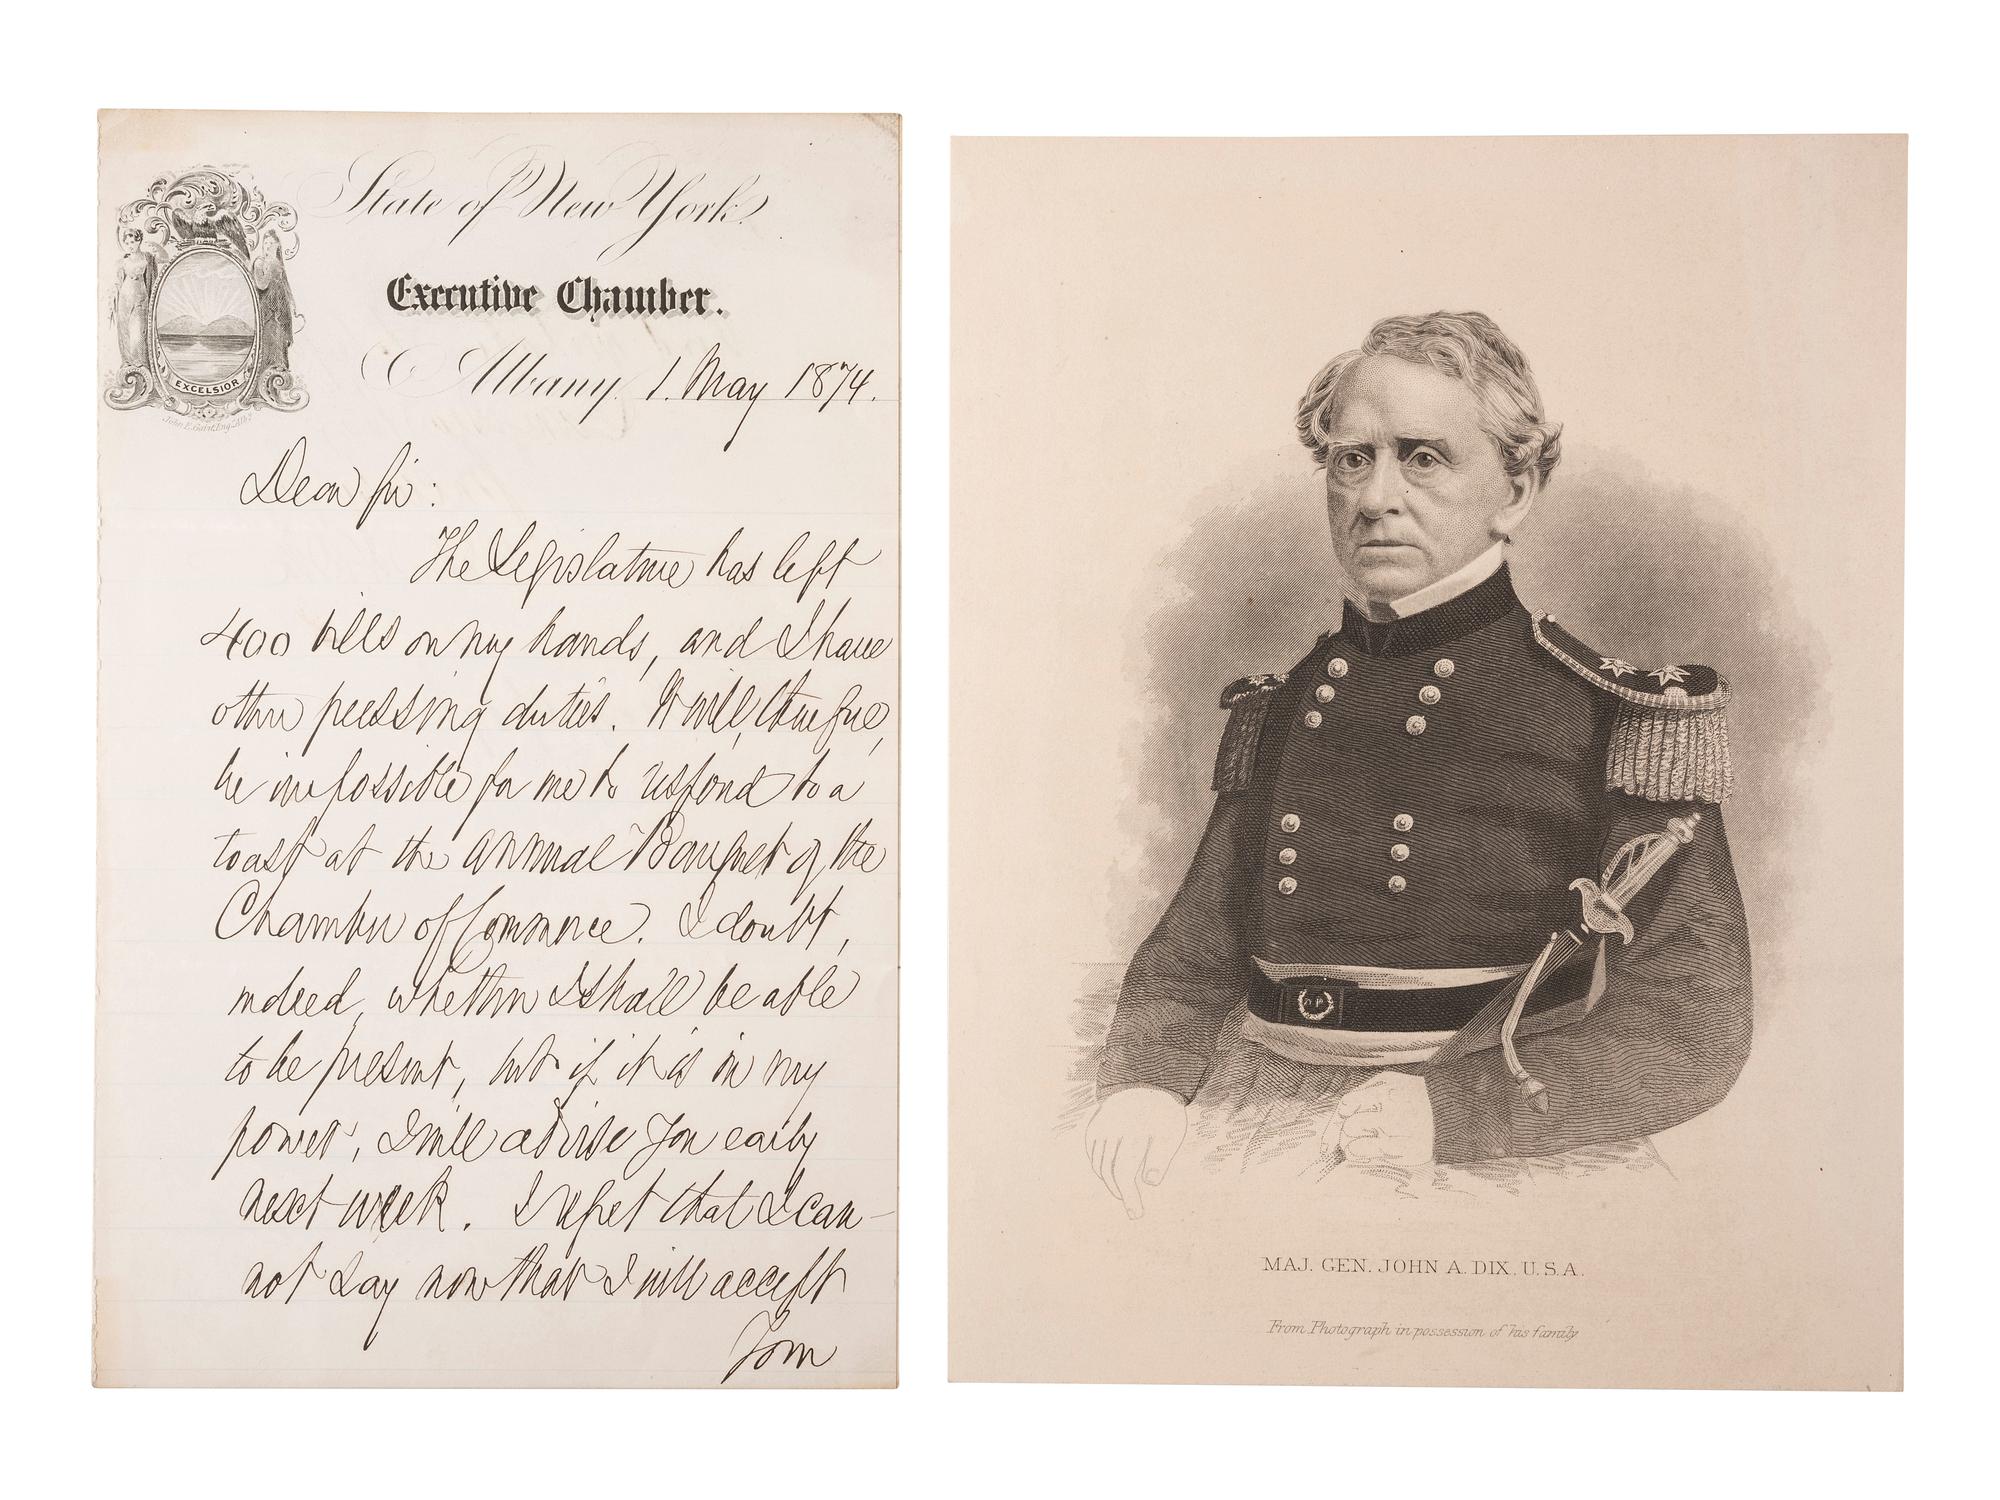 State of New York.
Executive Chamber.
Albany, 1. May 1874.
EXCELSIOR
Dear Sir:
The Legislature has left
400 bills on my hands, and I have
other pressing duties. It will, therefore,
be impossible for me to respond to a
toast at the annual Banquet of the
Chamber of Commerce. I doubt,
indeed, whether I shall be able
to be present, but if it is in my
power, I will advise you early
next week. I regret that I can-
not say now that I will accept
Your
MAJ. GEN. JOHN A. DIX. U.S.A.
From Photograph in possession of his family